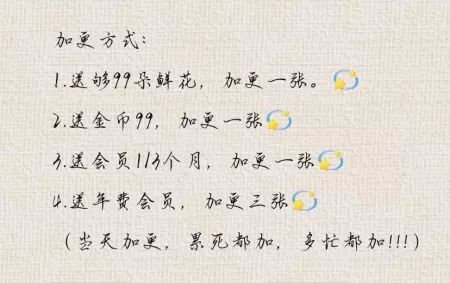 加更方式:
1.送够99朵鲜花，加更一张。💫
2.送金币99，加更一张💫
3.送会员1/3个月，加更一张💫
4.送年费会员，加更三张💫
(当天加更，累死都加，多忙都加!!!)